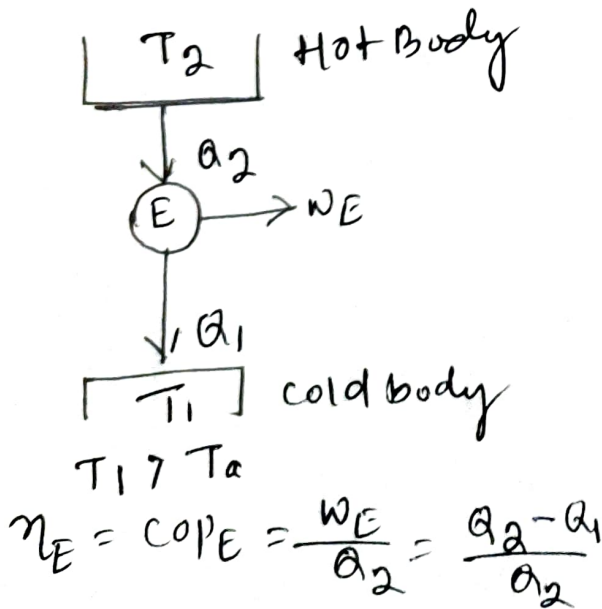 T2 Hot Body
Q2
E WE
Q1
T1 Cold body
T1 > Ta
ηE = COPE = WE/Q2 = Q2-Q1/Q2